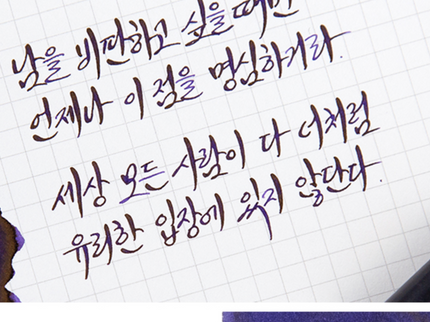 남을 비판하고 싶을 때면
언제나 이 점을 명심하거라.
세상 모든 사람이 다 너처럼
유리한 입장에 있지 않단다.